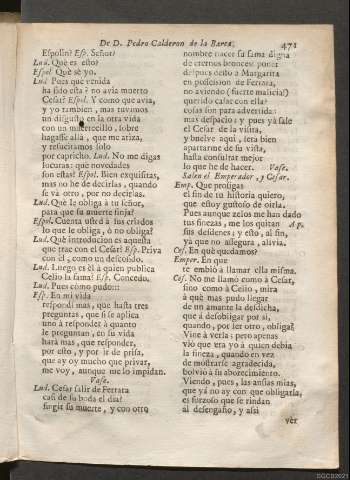 De D. Pedro Calderon de la Barca.
471
Espolin? Esp. Señor?
Lud. Què es esto?
Espol. Què sè yo.
Lud. Pues què venida
ha sido esta? no avia muerto
Cesar? Espol. Y como que ava,
y yo tambien, mas tuvimos
un disgusto en la otra vida
con un muertecillo, sobre
hagasse allà, que me ariza,
y resucitamos solo
por capricho. Lud. No me digas
locuras: què novedades
son estas? Espol. Bien exquisitas,
mas no he de decirlas, quando
se và otro, por no decirlas.
Lud. Què le obliga à tu señor,
para que su muerte finja?
Espol. Cuenta usted à sus criados
lo que le obliga, ò no obliga?
Lud. Què introducion es aquesta
que trae con el Cesar? Esp. Priva
con èl, como un descosido.
Lud. Luego es èl à quien publica
Celio la fama? Esp. Concedo.
Lud. Pues còmo pudo:::
Esp. En mi vida
respondi mas, que hasta tres
preguntas, que si se aplica
uno à responder à quanto
le preguntan, en su vida
harà mas, que responder,
por esto, y por ir de prisa,
que ay oy mucho que privar,
me voy, aunque me lo impidan.
Vase.
Lud. Cesar salir de Ferrara
casi de su boda el dia?
fingir su muerte, y con otro
nombre hacer su fama digna
de eternos bronces? poner
despues deudo à Margarita
en possession de Ferrara,
no aviendo (fuerte malicia!)
querido casar con ella?
cosas son para advertidas
mas despacio; y pues yà sale
el Cesar de la visita,
y buelve aqui, serà bien
apartarme de su vista,
hasta consultar mejor
lo que he de hacer. Vase.
Salen el Emperador, y Cesar.
Emp. Que prosigas
el fin de tu historia quiero,
que estoy gustoso de oirla.
Pues aunque zelos me han dado
tus finezas, me los quitan Ap.
sus desdenes; y esto, al fin,
yà que no assegura, alivia.
Ces. En què quedamos?
Emper. En que
te embiò à llamar ella misma.
Ces. No me llamò como à Cesar,
sino como à Celio, mira
à què mas pudo llegar
de un amante la desdicha,
que à desobligar por sì,
quando, por ser otro, obliga?
Vine à verla; pero apenas
viò que era yo à quien debia
la fineza, quando en vez
de mostrarse agradecida,
bolviò à su aborecimiento.
Viendo, pues, las ansias mias,
que yà no ay con que obligarla,
es forzoso que se rindan
al desengaño, y assi
ver